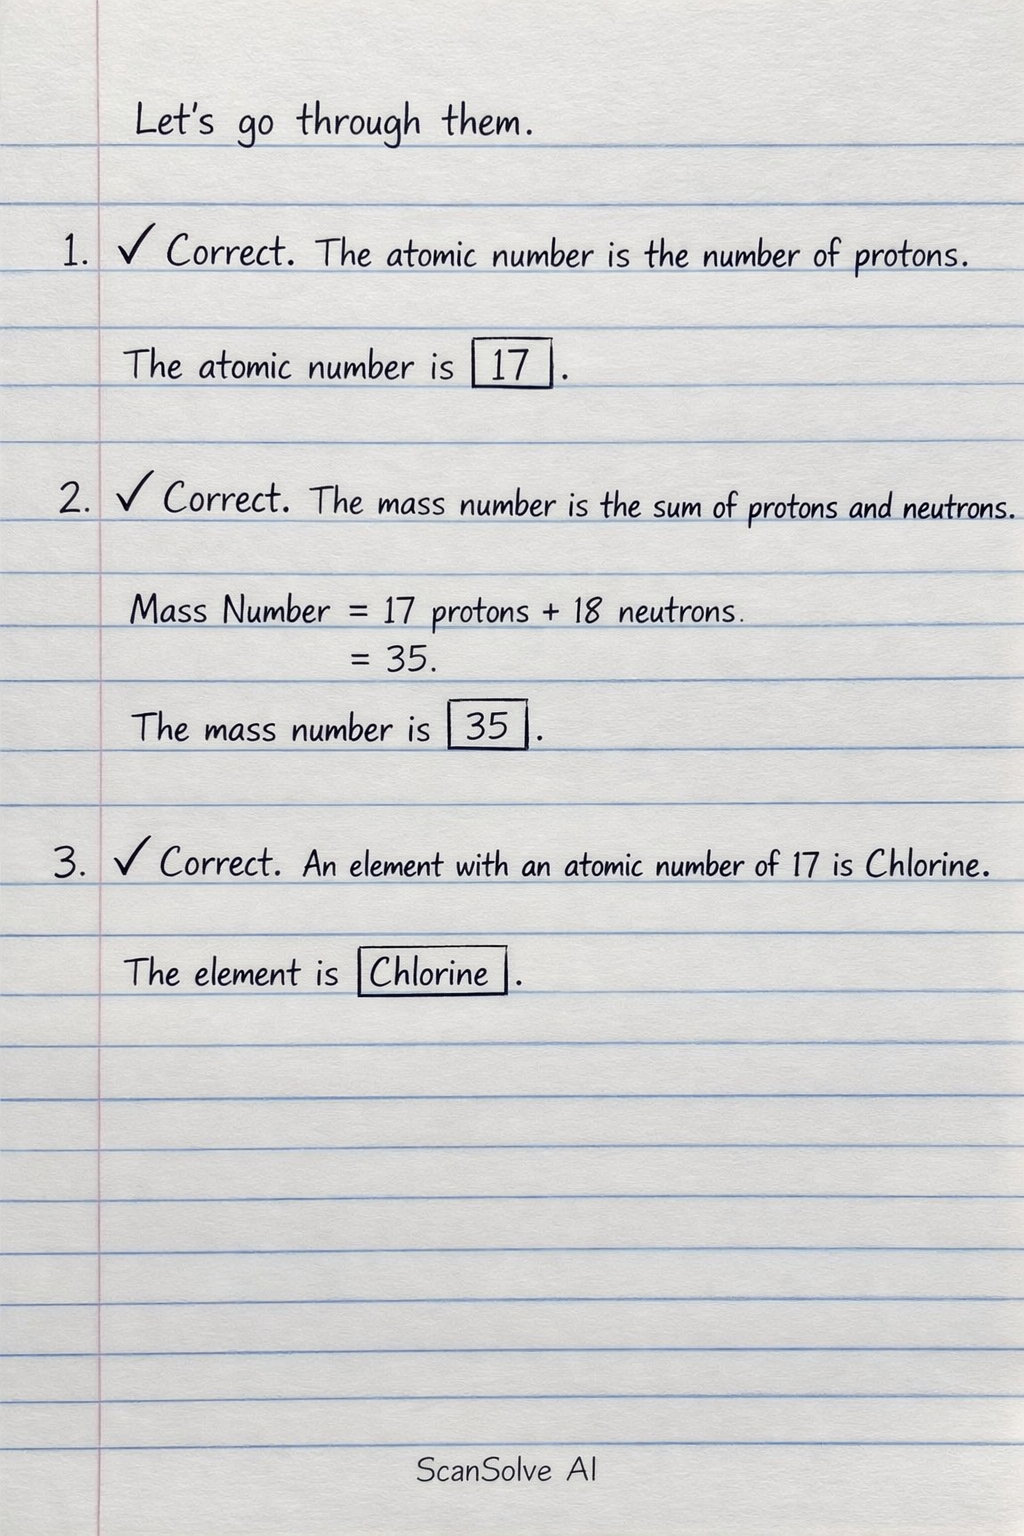 Let's go through them.
1. ✓ Correct. The atomic number is the number of protons.
The atomic number is 17.
2. ✓ Correct. The mass number is the sum of protons and neutrons.
Mass Number = 17 protons + 18 neutrons.
= 35.
The mass number is 35.
3. ✓ Correct. An element with an atomic number of 17 is Chlorine.
The element is Chlorine.
ScanSolve AI